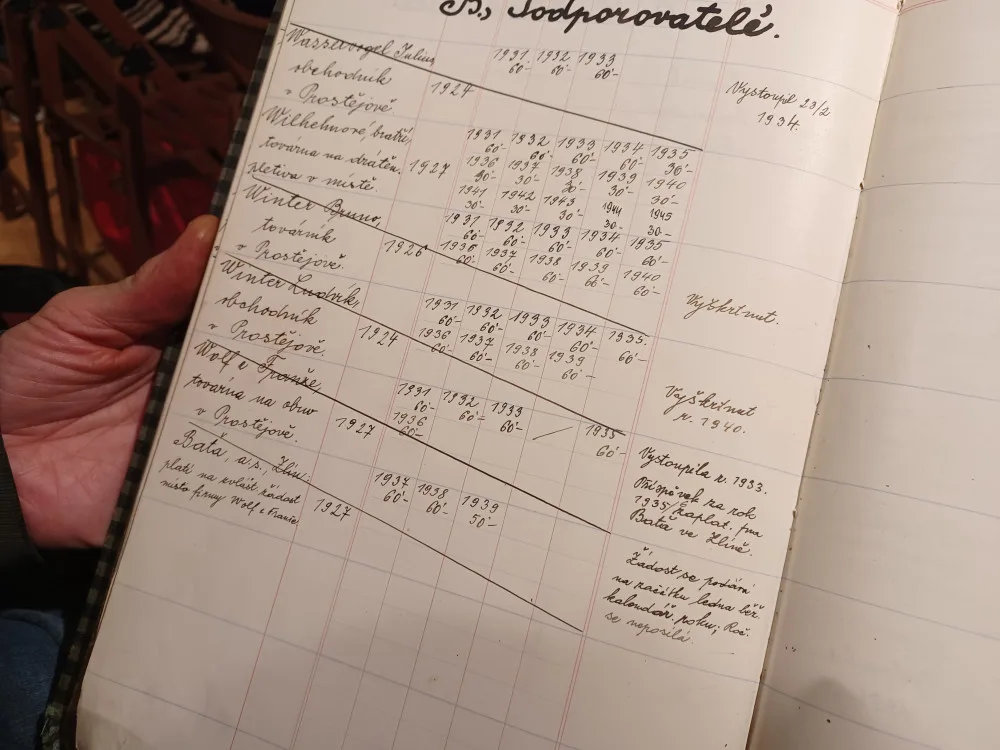 B, Podporovatelé.
Wasservogel Julius,
obchodník
v Prostějově.
1924
1931 1932 1933
60·- 60·- 60·-
Vystoupil 28/2
1934.
Wilhelmové, bratři,
továrna na drátěn.
pletiva v místě.
1927
1931 1932 1933 1934 1935
60·- 60·- 60·- 60·- 30·-
1936 1937 1938 1939 1940
30·- 30·- 30·- 30·- 30·-
1941 1942 1943 1944 1945
30·- 30·- 30·- 30·- 30·-
Winter Bruno,
továrník
v Prostějově.
1926
1931 1932 1933 1934 1935
60·- 60·- 60·- 60·- 60·-
1936 1937 1938 1939 1940
60·- 60·- 60·- 60·- 60·-
Vyškrtnut.
Winter Ludvík,
obchodník
v Prostějově.
1924
1931 1932 1933 1934 1935.
60·- 60·- 60·- 60·- 60·-
1936 1937 1938 1939
60·- 60·- 60·- 60·-
Vyškrtnut
r. 1940.
Wolf a Franke,
továrna na obuv
v Prostějově.
1927
1931 1932 1933 — 1935
60·- 60·- 60·- 60·-
1936
60·-
Vystoupila r. 1933.
Příspěvek za rok
1935 zaplat. fma
Baťa ve Zlíně.
Baťa, a.s., Zlín.
platí na zvlášť žádost
místo firmy Wolf a Franke
1927
1937 1938 1939
60·- 60·- 50·-
Žádost se podává
na začátku ledna běž.
kalendář. roku; Roč.
se neposílá.